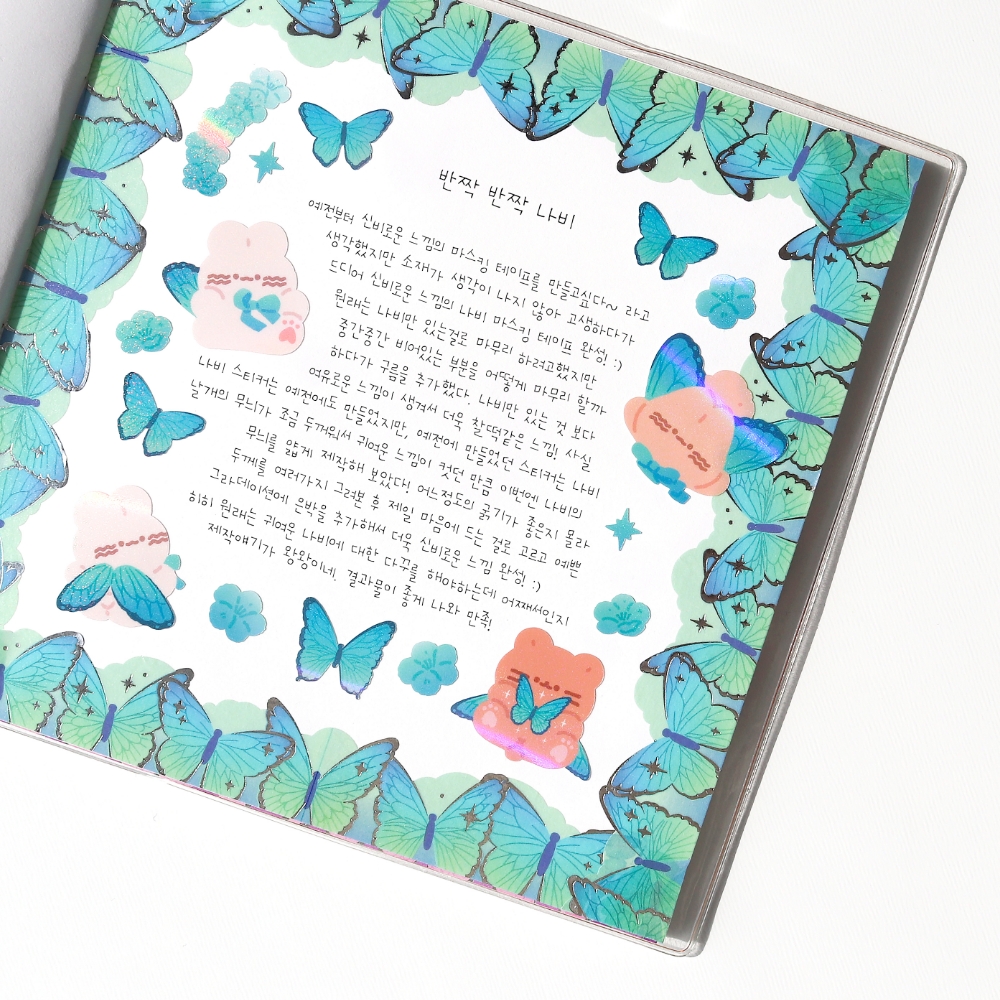 반짝 반짝 나비
예전부터 신비로운 느낌의 마스킹 테이프를 만들고싶다~ 라고
생각했지만 소재가 생각이 나지 않아 고생하다가
드디어 신비로운 느낌의 나비 마스킹 테이프 완성! :)
원래는 나비만 있는걸로 마무리 하려고했지만
중간중간 비어있는 부분을 어떻게 마무리 할까
하다가 구름을 추가했다. 나비만 있는 것 보다
여유로운 느낌이 생겨서 더욱 찰떡같은 느낌! 사실
나비 스티커는 예전에도 만들었지만, 예전에 만들었던 스티커는 나비
날개의 무늬가 조금 두꺼워서 귀여운 느낌이 컷던 만큼 이번엔 나비의
무늬를 얇게 제작해 보았다! 어느정도의 굵기가 좋은지 몰라
두께를 여러가지 그려본 후 제일 마음에 드는 걸로 고르고 예쁜
그라데이션에 은박을 추가해서 더욱 신비로운 느낌 완성! :)
히히 원래는 귀여운 나비에 대한 다꾸를 해야하는데 어째서인지
제작얘기가 왕왕이네, 결과물이 좋게 나와 만족!